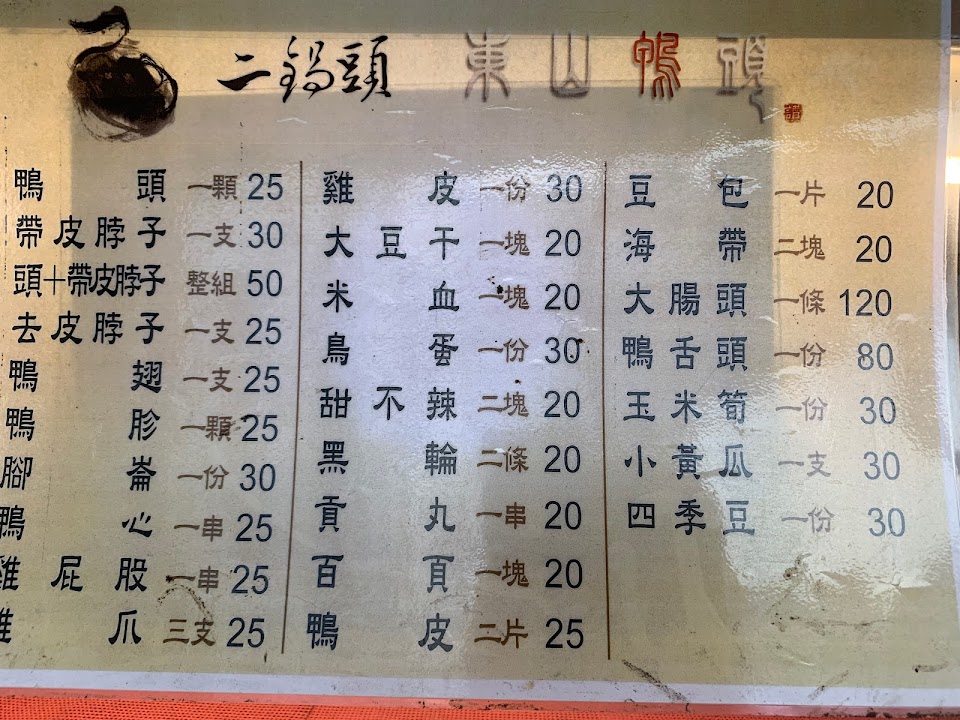 二鍋頭 東山鴨頭
鴨頭 一顆 25
帶皮脖子 一支 30
頭+帶皮脖子 整組 50
去皮脖子 一支 25
鴨翅 一支 25
鴨胗 一顆 25
腳崙 一份 30
鴨心 一串 25
雞屁股 一串 25
雞爪 三支 25
雞皮 一份 30
大豆干 一塊 20
米血 一塊 20
鳥蛋 一份 30
甜不辣 二塊 20
黑輪 二條 20
貢丸 一串 20
百頁 一塊 20
鴨皮 二片 25
豆包 一片 20
海帶 二塊 20
大腸頭 一條 120
鴨舌頭 一份 80
玉米筍 一份 30
小黃瓜 一支 30
四季豆 一份 30